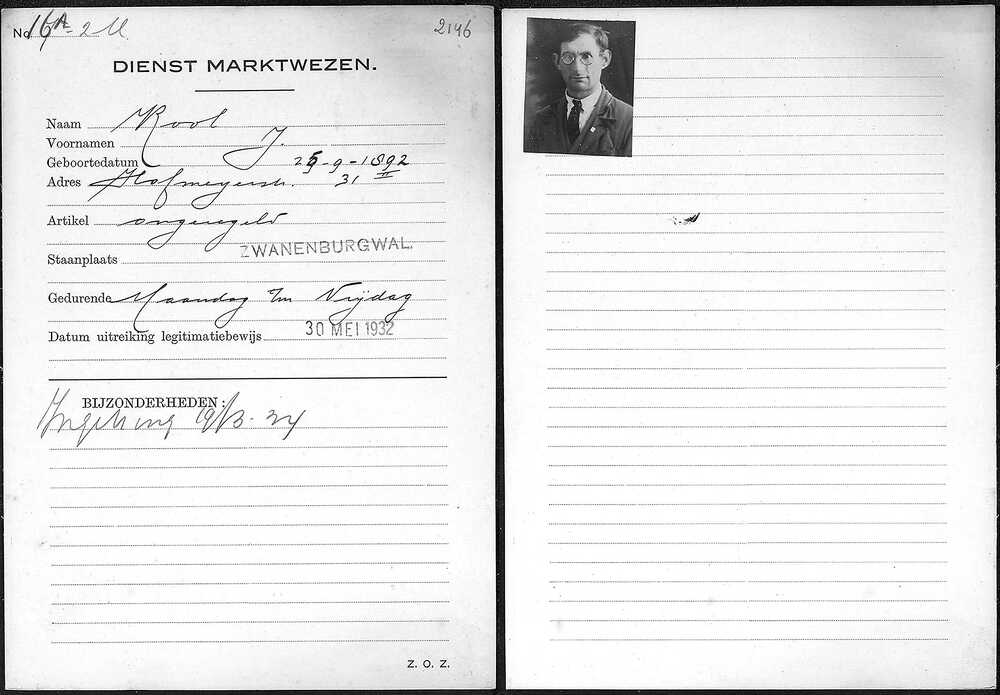 No 16A - 2 M 2146
DIENST MARKTWEZEN.
Naam Kool
Voornamen J.
Geboortedatum 25-9-1892
Adres Hofmeyerstr. 31 II
Artikel ongeregeld
ZWANENBURGWAL.
Staanplaats
Gedurende Maandag t/m Vrijdag
Datum uitreiking legitimatiebewijs 30 MEI 1932
BIJZONDERHEDEN:
19/3-34
Z. O. Z.